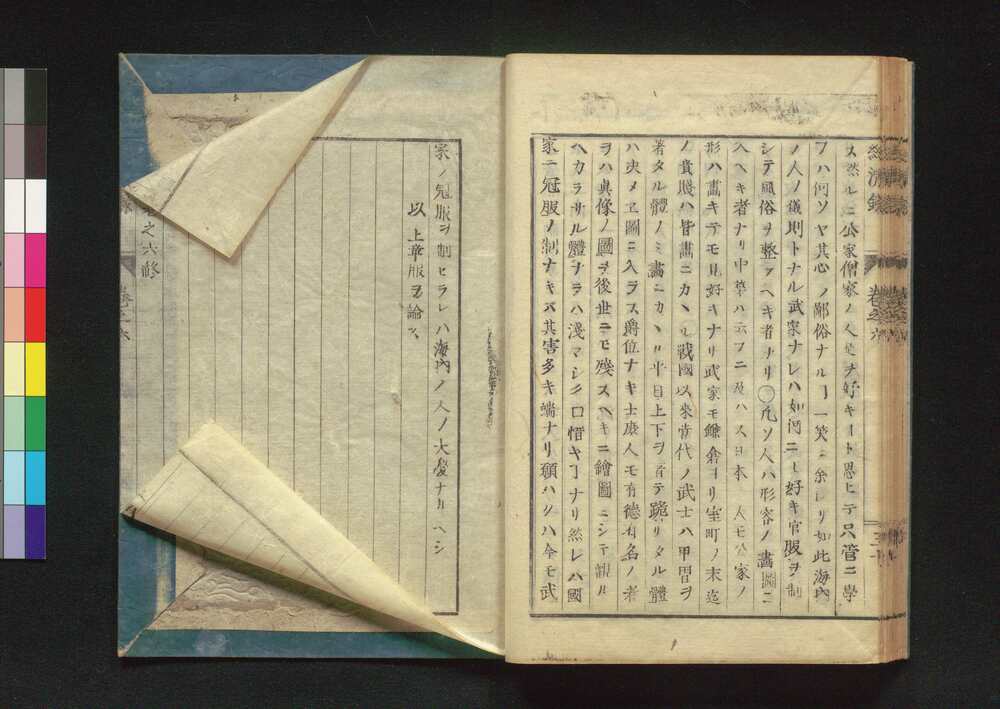 ス然ルニ公家僧家ノ人是ヲ好キート思ヒテ只管ニ學
フハ何ソヤ其心ノ鄙俗ナルヿ一笑ニ余レリ如此海內
ノ人ノ儀則トナル武家ナレハ如何ニモ好キ官服ヲ制
シテ風俗ヲ整フヘキ者ナリ〇凡ソ人ハ形容ノ畫圖ニ
入ヘキ者ナリ中華ハ云フニ及ハス日本ノ人モ公家ノ
形ハ畫キテモ見好キナリ武家モ鎌倉ヨリ室町ノ末迄
ノ貴賤ハ皆畫ニカヽル戰國以來當代ノ武士ハ甲冑ヲ
著タル體ノミ畫ニカヽル平日上下ヲ着テ跪リタル體
ハ決メヱ圖ニ入ラス爵位ナキ士庶人モ有德有名ノ者
ヲハ眞像ノ圖ヲ後世ニモ殘スヘキニ繪圖ニシテ觀ル
ヘカラサル體ナラハ淺マシク口惜キヿナリ然レハ國
家ニ冠服ノ制ナキハ其害多キ端ナリ願ハクハ今モ武
經濟錄 卷之六
家ノ冠服ヲ制セラレハ海內ノ人ノ大慶ナルヘシ
以上章服ヲ論ス
之六終